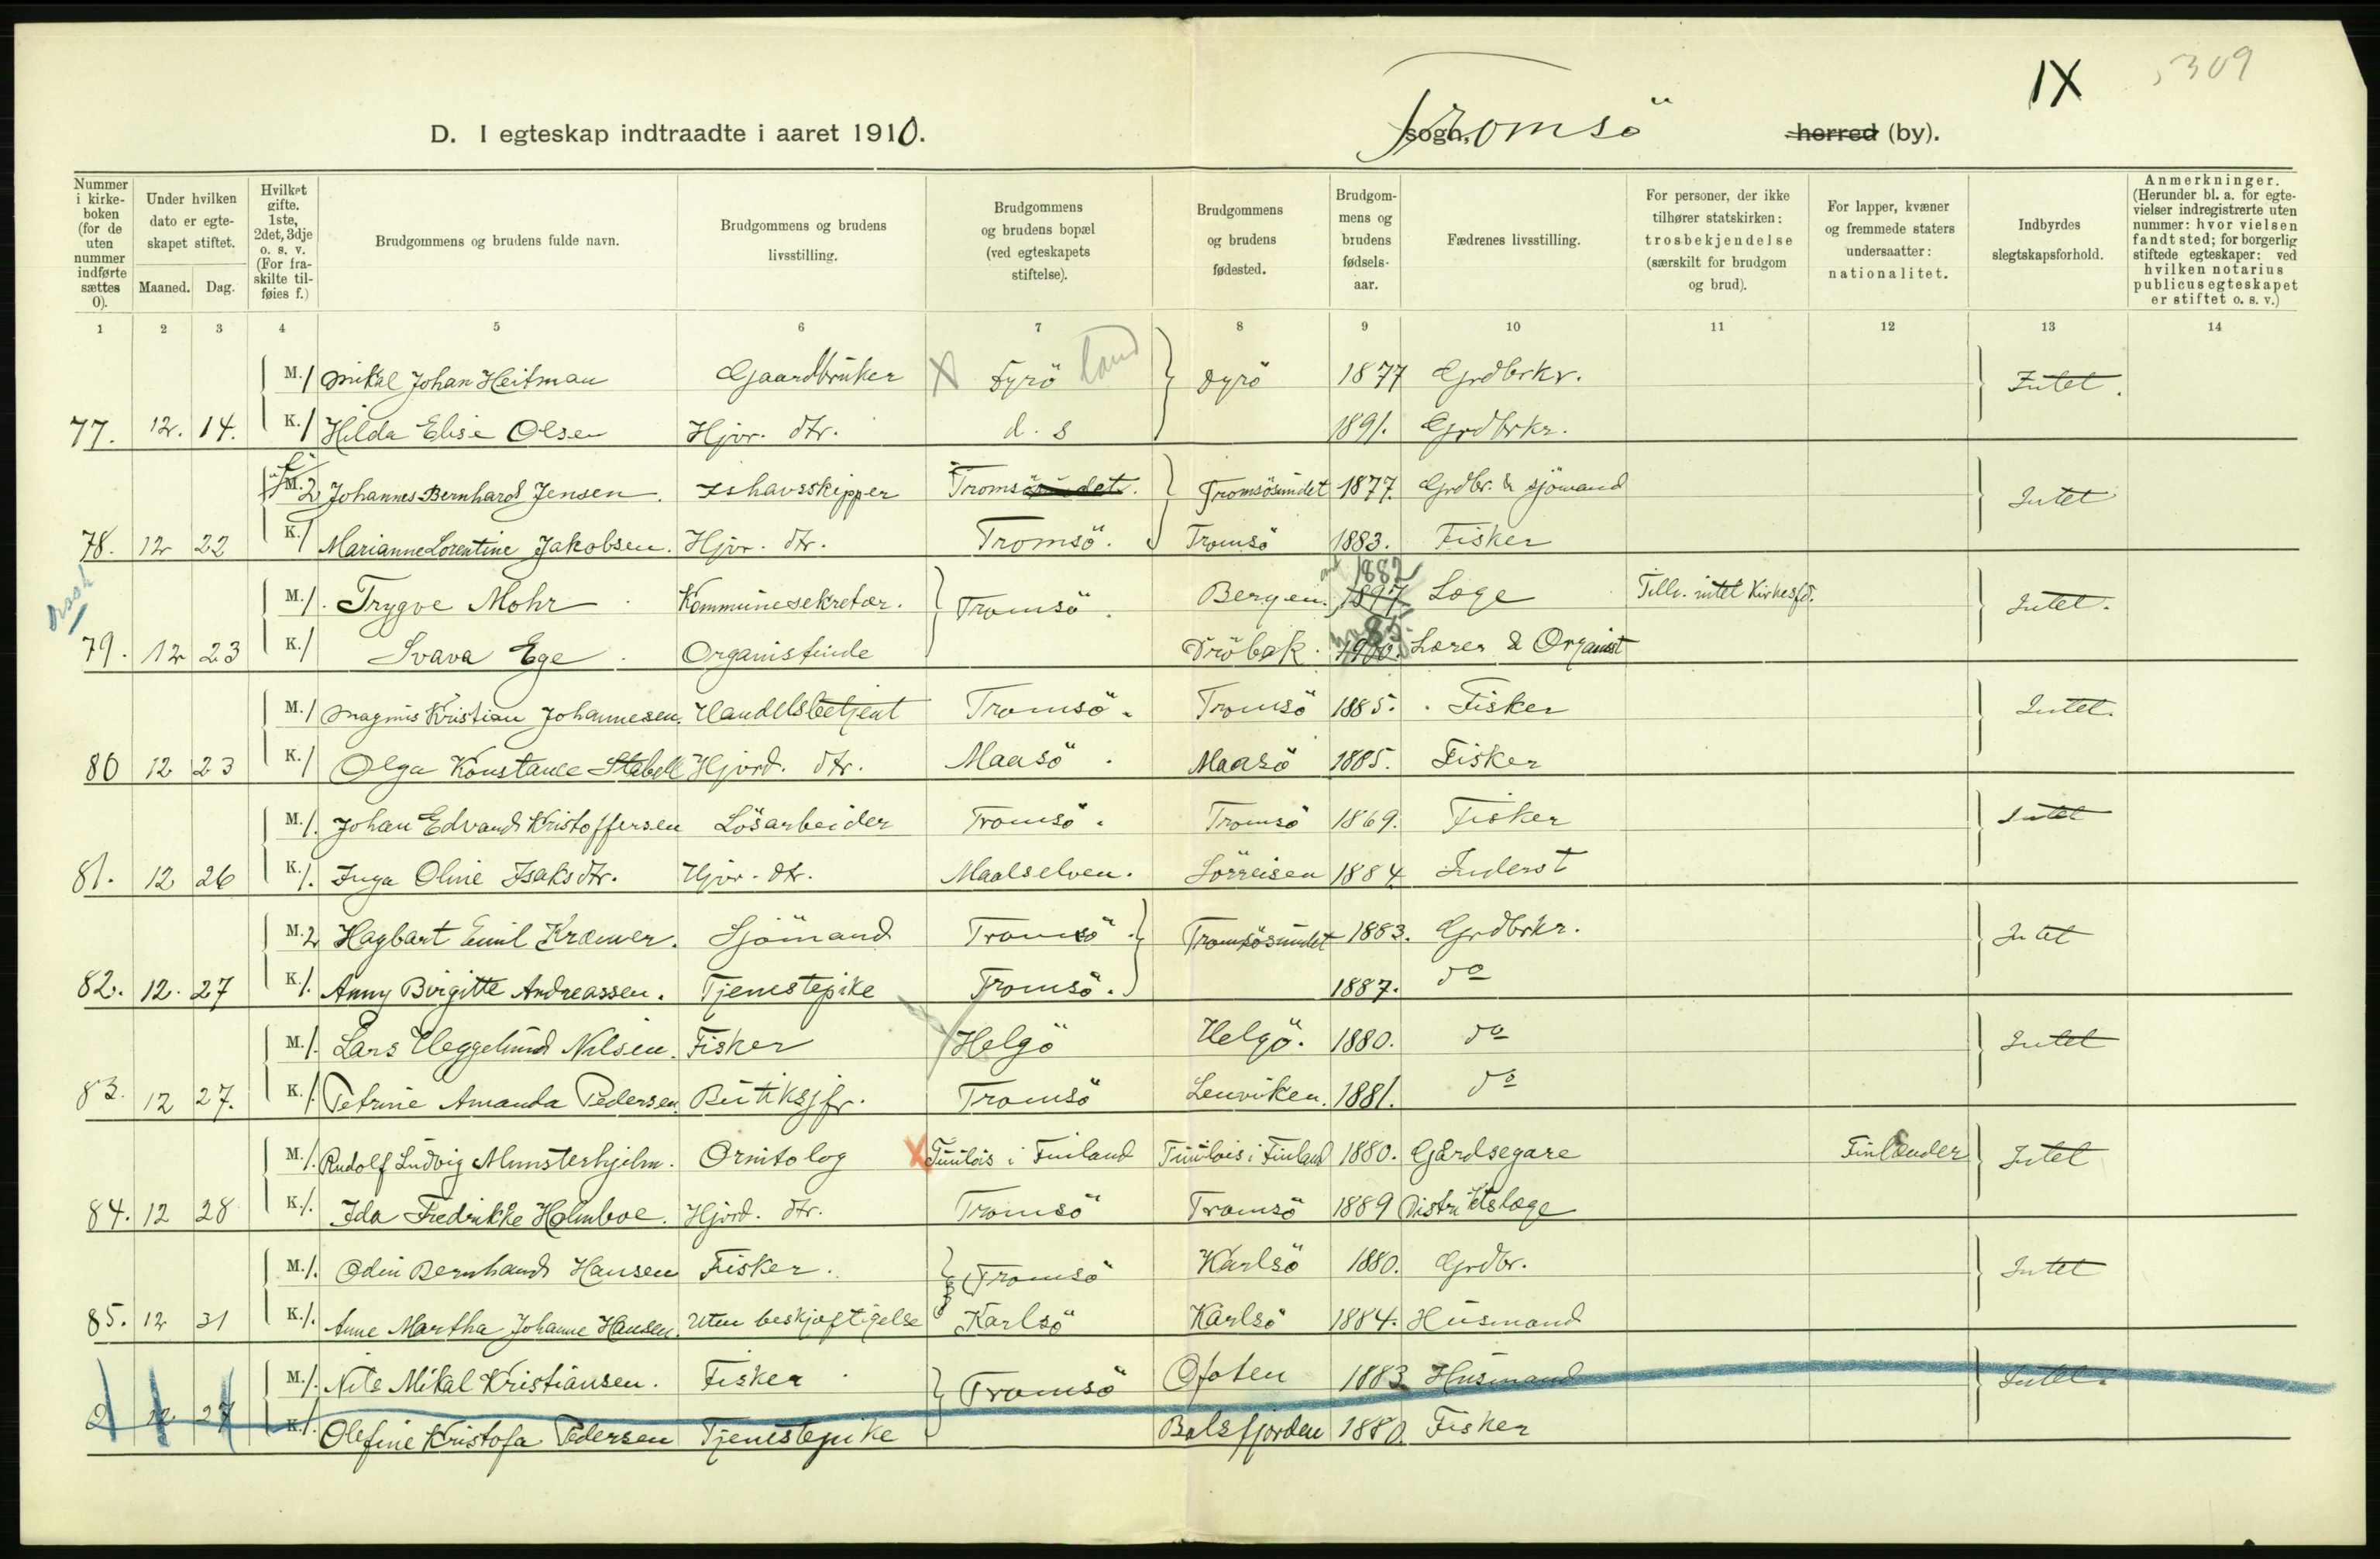 IX
5309
D. I egteskap indtraadte i aaret 1910.
Tromsö sogn, herred (by).
Nummer i kirkeboken (for de uten nummer indførte sættes 0).
Under hvilken dato er egteskapet stiftet.
Maaned. Dag.
Hvilket gifte. 1ste, 2det, 3dje o. s. v. (For fraskilte tilføies f.)
Brudgommens og brudens fulde navn.
Brudgommens og brudens livsstilling.
Brudgommens og brudens bopæl (ved egteskapets stiftelse).
Brudgommens og brudens fødested.
Brudgommens og brudens fødselsaar.
Fædrenes livsstilling.
For personer, der ikke tilhører statskirken: trosbekjendelse (særskilt for brudgom og brud).
For lapper, kvæner og fremmede staters undersaatter: nationalitet.
Indbyrdes slegtskapsforhold.
Anmerkninger. (Herunder bl. a. for egtevielser indregistrerte uten nummer: hvor vielsen fandt sted; for borgerlig stiftede egteskaper: ved hvilken notarius publicus egteskapet er stiftet o. s. v.)
1 2 3 4 5 6 7 8 9 10 11 12 13 14
M. 1 Mikal Johan Heitman Gaardbruker X Dyrö land Dyrö 1877 Grdbrkr. Intet.
77. 12. 14. K. 1 Hilda Elise Olsen Hjvr. dtr. d. s 1891. Grdbrkr.
M. 2 Johannes Bernhard Jensen. Ishavsskipper Tromsösundet. Tromsösundet 1877. Grdbr. & sjömand Intet
78. 12 22 K. 1 Marianne Lorentine Jakobsen. Hjvr. dtr. Tromsö. Tromsö 1883. Fisker
M. 1. Trygve Mohr Kommunesekretær. Tromsö. Bergen. 1897 1882 Læge Tilh. intet Kirkesfd. Intet.
79. 12 23 K. 1 Svava Ege. Organistinde Dröbak. 1900. 85. Lærer & Organist
M. 1 Magnus Kristian Johannesen. Handelsbetjent Tromsö. Tromsö 1885. Fisker Intet.
80 12 23 K. 1 Olga Konstance Stabell Hjvrd. dtr. Maasö. Maasö 1885. Fisker
M. 1. Johan Edvard Kristoffersen Lösarbeider Tromsö. Tromsö 1869. Fisker Intet
81. 12 26 K. 1. Inga Oline Isaksdtr. Hjvr. dtr. Maalselven. Sörreisen 1884 Inderst
M. 2 Hagbart Emil Kræmer. Sjömand Tromsö. Tromsösundet 1883. Grdbrkr. Intet
82. 12. 27 K. 1. Anny Birgitte Andreassen. Tjenestepike Tromsö. 1887. do
M. 1. Lars Heggelund Nilsen. Fisker Helgö Helgö. 1880. do Intet
83. 12 27. K. 1. Petrine Amanda Pedersen. Butiksjfr. Tromsö Lenviken. 1881. do
M. 1. Rudolf Ludvig Munsterhjelm. Ornitolog X Tuulois i Finland Tuulois i Finland 1880. Gårdsegare Finlænder Intet
84. 12 28 K. 1. Ida Fredrikke Holmboe. Hjvrd. dtr. Tromsö Tromsö 1889 Distriktslæge
M. 1. Odin Bernhard Hansen Fisker. Tromsö Karlsö 1880. Grdbr. Intet
85. 12 31 K. 1. Anne Martha Johanne Hansen. Uten beskjæftigelse Karlsö Karlsö 1884. Husmand
M. 1. Nils Mikal Kristiansen. Fisker Tromsö Ofoten 1883 Husmand Intet.
0 12 27 K. 1. Olefine Kristofa Pedersen Tjenestepike Balsfjorden 1880. Fisker